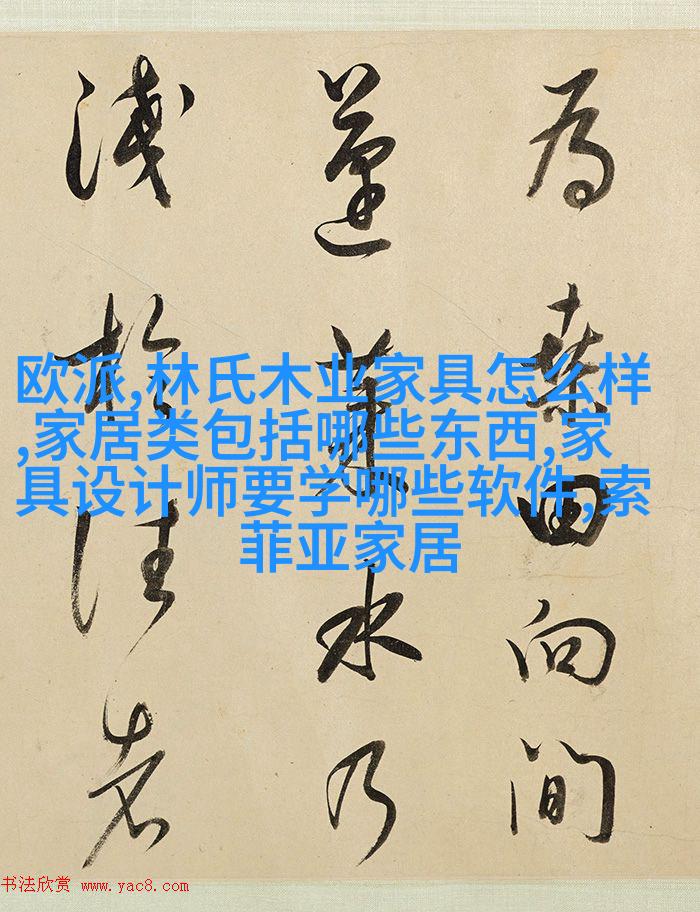 為桑田向間
蓬萊水乃
淺於往者
欧派,林氏木业家具怎么样
,家居类包括哪些东西,家
具设计师要学哪些软件,索
菲亚家居
书法欣赏 www.yac8.com